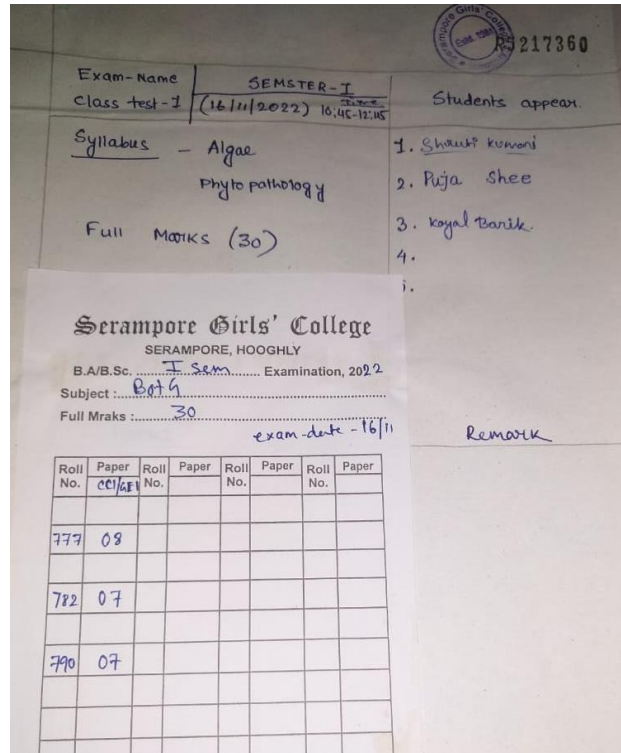 Serampore Girls' College
Estd. 1981
RS217360
Exam-Name
Class test-1
SEMSTER-I
(16/11/2022) Time 10:45-12:15
Students appear.
Syllabus - Algae
Phytopathology
Full Marks (30)
1. Shruti Kumari
2. Puja Shee
3. Koyal Barik.
4.
5.
Serampore Girls' College
SERAMPORE, HOOGHLY
B.A/B.Sc. I Sem Examination, 2022
Subject : BotG
Full Mraks : 30
exam-date - 16/11
Remark
Roll No. Paper Roll No. Paper Roll No. Paper Roll No. Paper
CC1/GE1
777 08
782 07
790 07